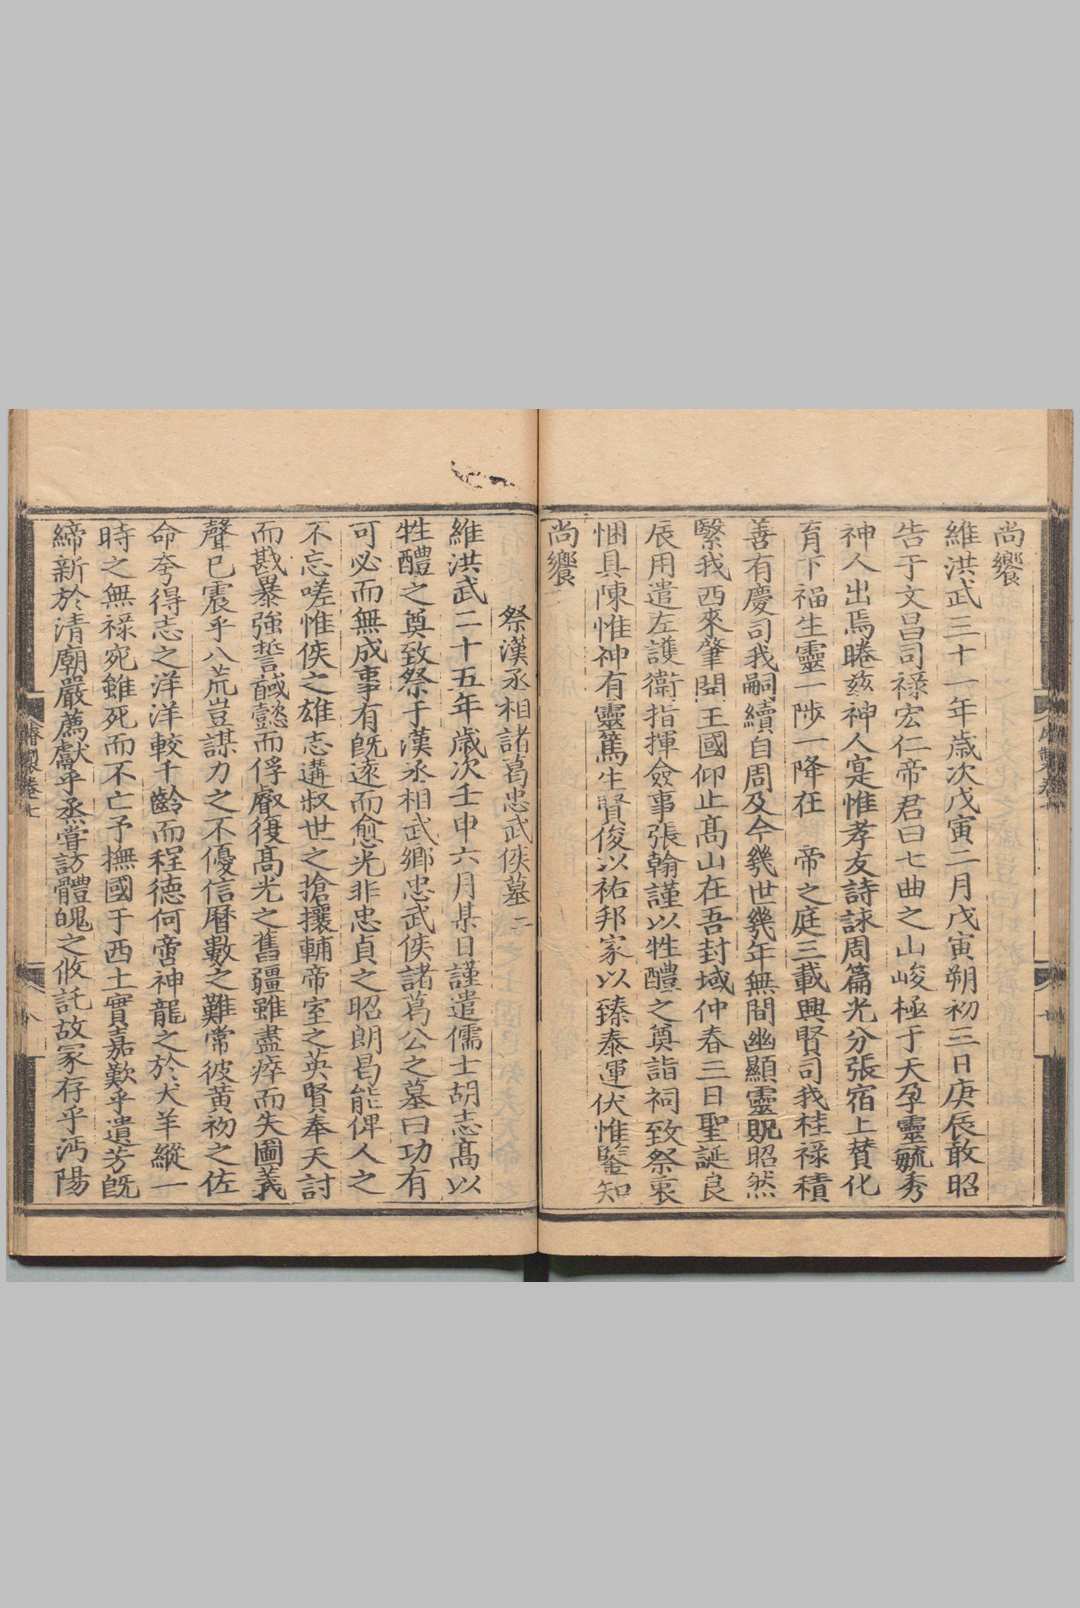 尚饗
維洪武三十一年歳次戊寅二月戊寅朔初三日庚辰敢昭
告于文昌司祿宏仁帝君曰七曲之山峻極于天孕靈毓秀
神人出焉睠兹神人寔惟孝友詩詠周篇光分張宿上賛化
育下福生靈一陟一降在　帝之庭三載興賢司我桂祿積
善有慶司我嗣續自周及今幾世幾年無間幽顯靈貺昭然
繄我西來肇開王國仰止高山在吾封域仲春三日聖誕良
辰用遣左護衛指揮僉事張翰謹以牲醴之奠詣祠致祭衷
悃具陳惟神有靈篤生賢俊以祐邦家以臻泰運伏惟鑒知
尚饗
祭漢丞相諸葛忠武侯墓二
維洪武二十五年歳次壬申六月某日謹遣儒士胡志高以
牲醴之奠致祭于漢丞相武鄉忠武侯諸葛公之墓曰功有
可必而無成事有旣遠而愈光非忠貞之昭朗曷能俾人之
不忘嗟惟侯之雄志遘叔世之搶攘輔帝室之英賢奉天討
而戡暴強誓馘懿而俘叡復高光之舊疆雖盡瘁而失圖義
聲已震乎八荒豈謀力之不優信曆數之難常彼黃初之佐
命夸得志之洋洋較千齡而程德何啻神龍之於犬羊縱一
時之無祿宛雖死而不亡予撫國于西土實嘉歎乎遺芳旣
締新於清廟嚴薦獻乎烝嘗訪體魄之攸託故冢存乎沔陽